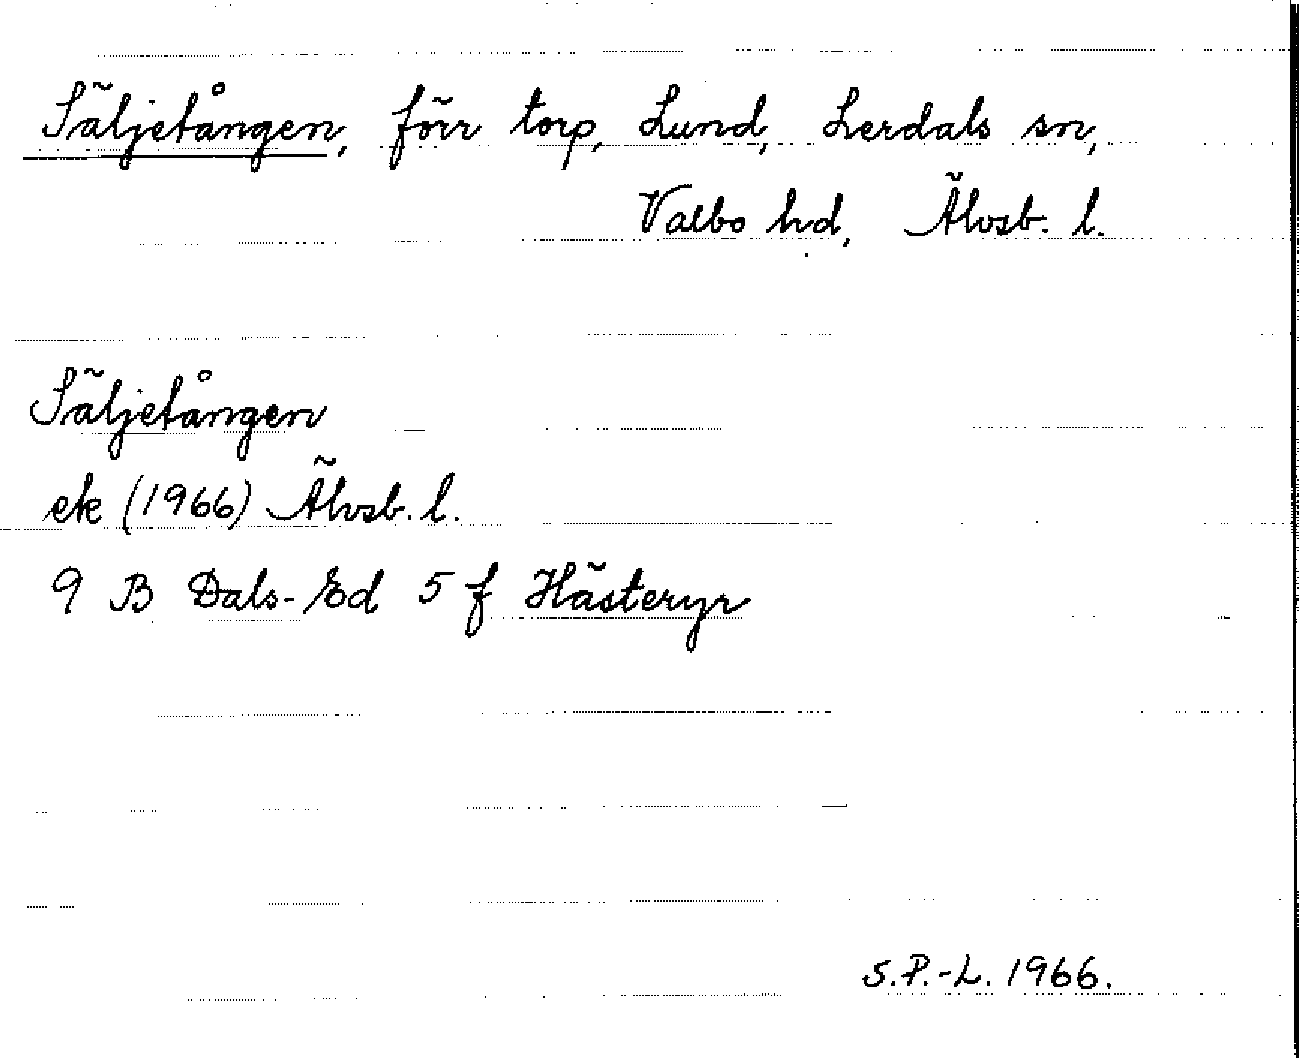 Säljetången, förr torp, Lund, Lerdals sn,
Valbo hd, Älvsb. l.
Säljetången
ek (1966) Älvsb. l.
9 B Dals-Ed 5 f Hästeryr
S.P.-L. 1966.